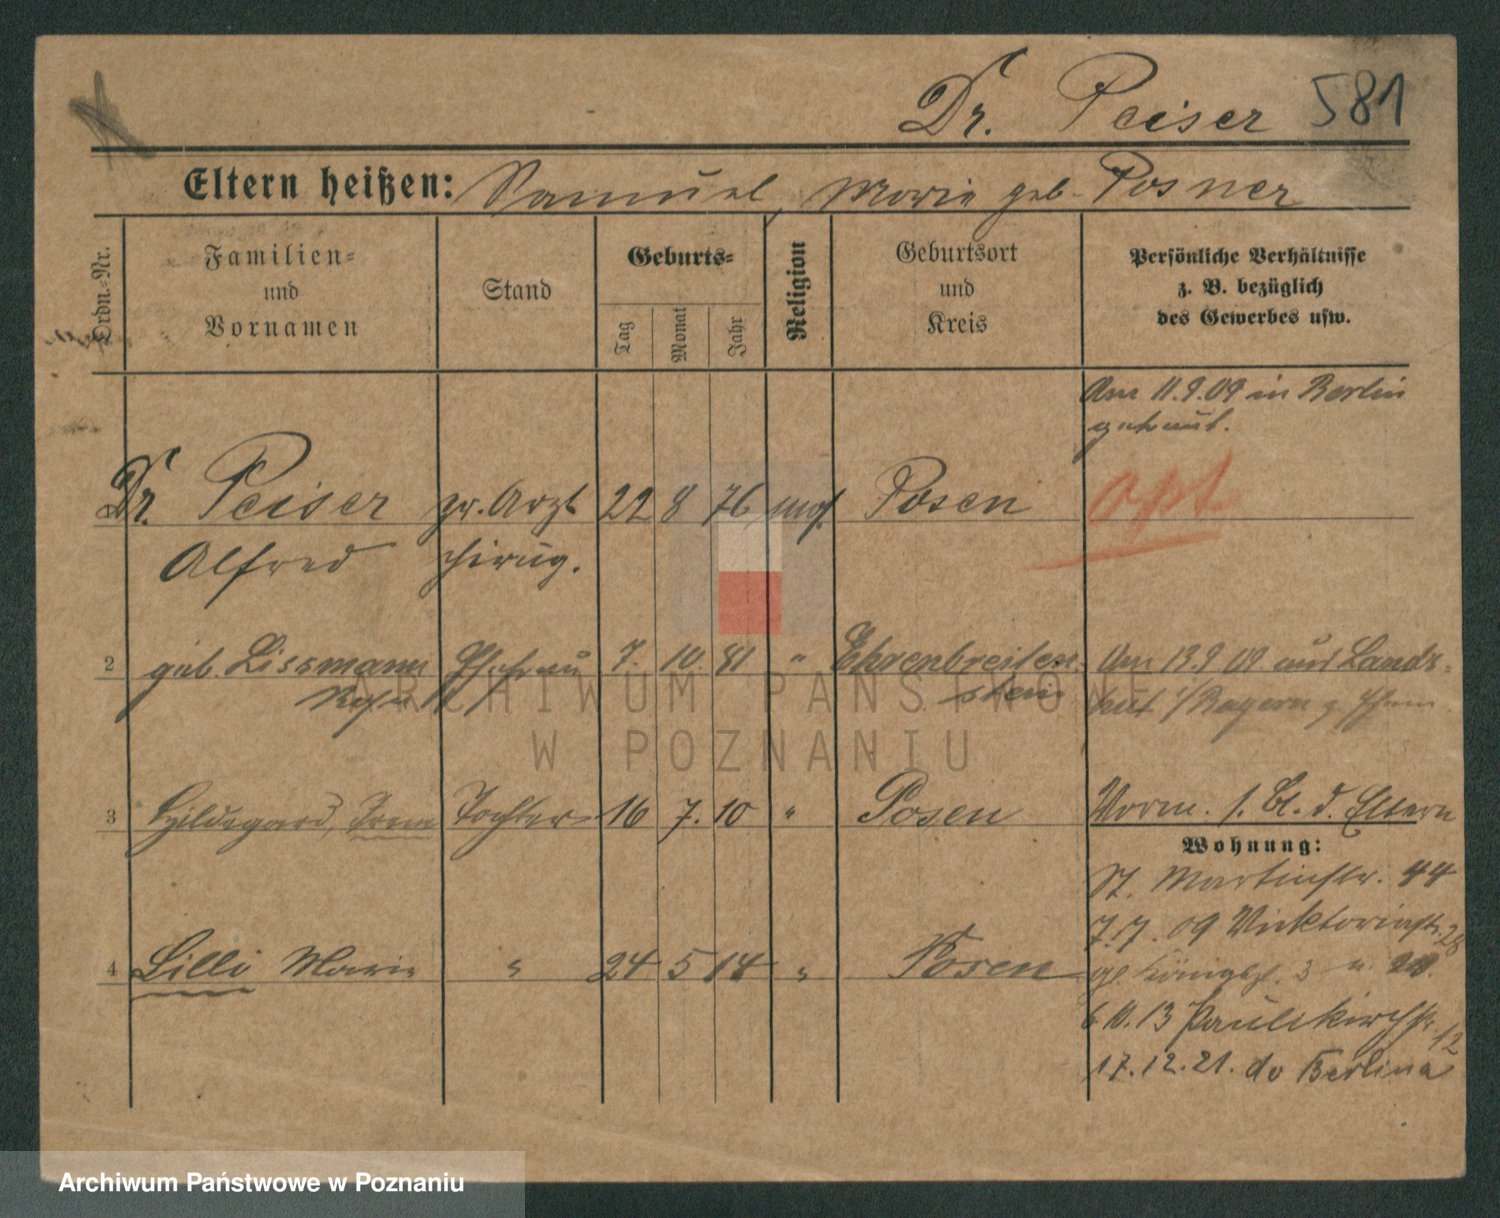 Dr. Peiser 581
Eltern heißen: Samuel, Marie geb. Posner
Ordn.-Nr.
Familien-
und
Vornamen
Stand
Geburts-
Tag
Monat
Jahr
Religion
Geburtsort
und
Kreis
Persönliche Verhältnisse
z. B. bezüglich
des Gewerbes usw.
Am 11.9.09 in Berlin
getraut.
Dr. Peiser pr. Arzt 22 8 76 mos. Posen opt
Alfred
2 geb. Lissmann Ehefrau 7. 10. 81 " Ehrenbreiten-
stein
Am 13.9.09 aus Lands-
hut i/Bayern z. Ehem.
3 Hildegard, Irene Tochter 16 7. 10 " Posen Vorm. s. Bl. d. Eltern
Wohnung:
St. Martinstr. 44
7.7.09 Viktoriastr. 28
4 Lilli Marie " 24 5 14 " Posen
gl. Königspl. 3
6.10.13 Paulikirchstr. 12
17.12.21. do Berlin a
ARCHIWUM PAŃSTWOWE
W POZNANIU
Archiwum Państwowe w Poznaniu